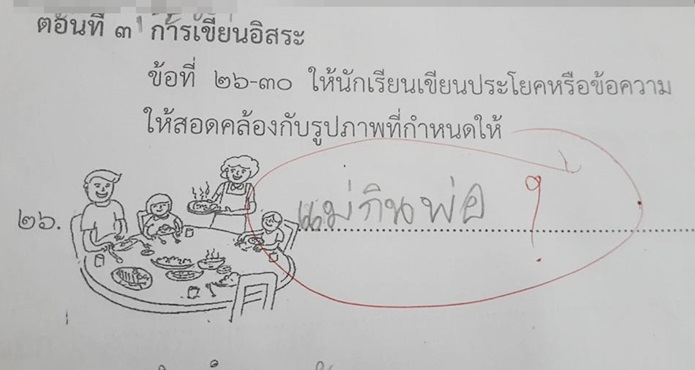 ตอนที่ ๓ การเขียนอิสระ
ข้อที่ ๒๖-๓๐ ให้นักเรียนเขียนประโยคหรือข้อความ
ให้สอดคล้องกับรูปภาพที่กำหนดให้
๒๖. แม่กินพ่อ ?